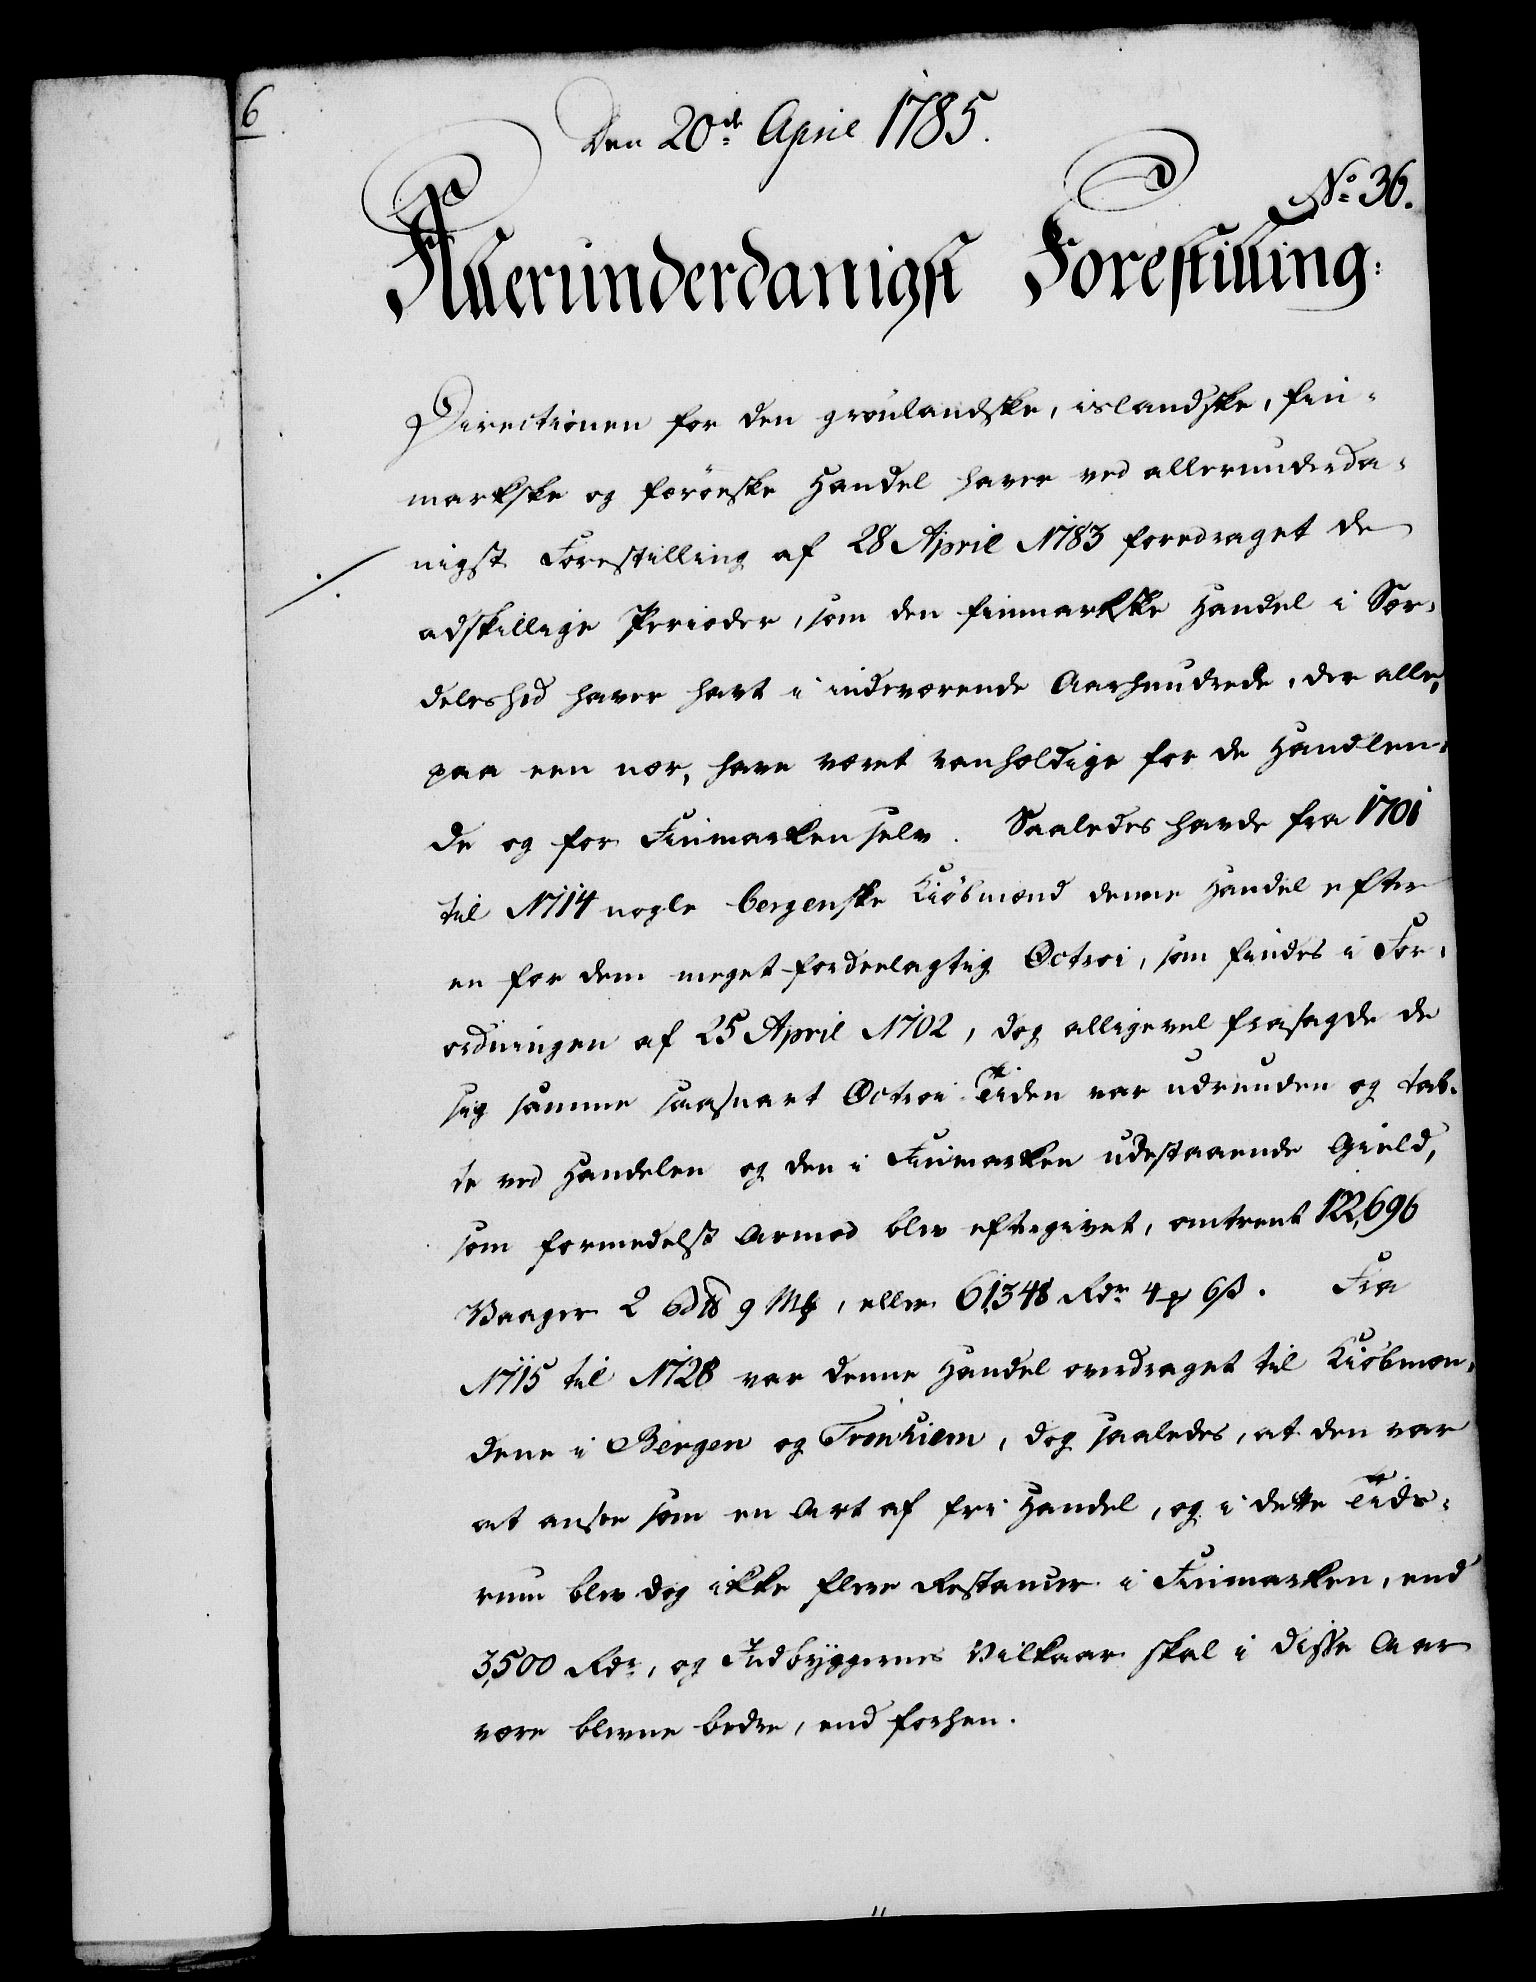 6
Den 20de April 1785.
No 36.
Allerunderdanigst Forestilling:
Directionen for den grönlandske, islandske, fin-
markske og færöeske Handel haver ved allerunderda-
nigst Forestilling af 28 April 1783 foredraget de
adskillige Perioder, som den finmarkske Handel i Sær-
deleshed haver havt i indeværende Aarhundrede, der alle,
paa een nær, have været vanheldige for de Handlen-
de og for Finmarken selv. Saaledes havde fra 1701
til 1714 nogle bergenske Kiöbmænd denne Handel efter
en for dem meget fordeelagtig Octroi, som findes i For-
ordningen af 25 April 1702, dog alligevel frasagde de
sig samme saasnart Octroi Tiden var udrunden og tab-
te ved Handelen og den i Finmarken udestaaende Gield,
som formedelst Armod blev eftergivet, omtrent 122,696
Vaager 2 9 Mk, eller 61,348 Rdr 4 6 ß. Fra
1715 til 1728 var denne Handel overdraget til Kiöbmæn-
dene i Bergen og Tronhiem, dog saaledes, at den var
at ansee som en Art af fri Handel, og i dette Tids-
rum blev dog ikke flere Restancer i Finmarken, end
3,500 Rdr, og Indbyggernes Vilkaar skal i disse Aar
være blevne bedre, end forhen.